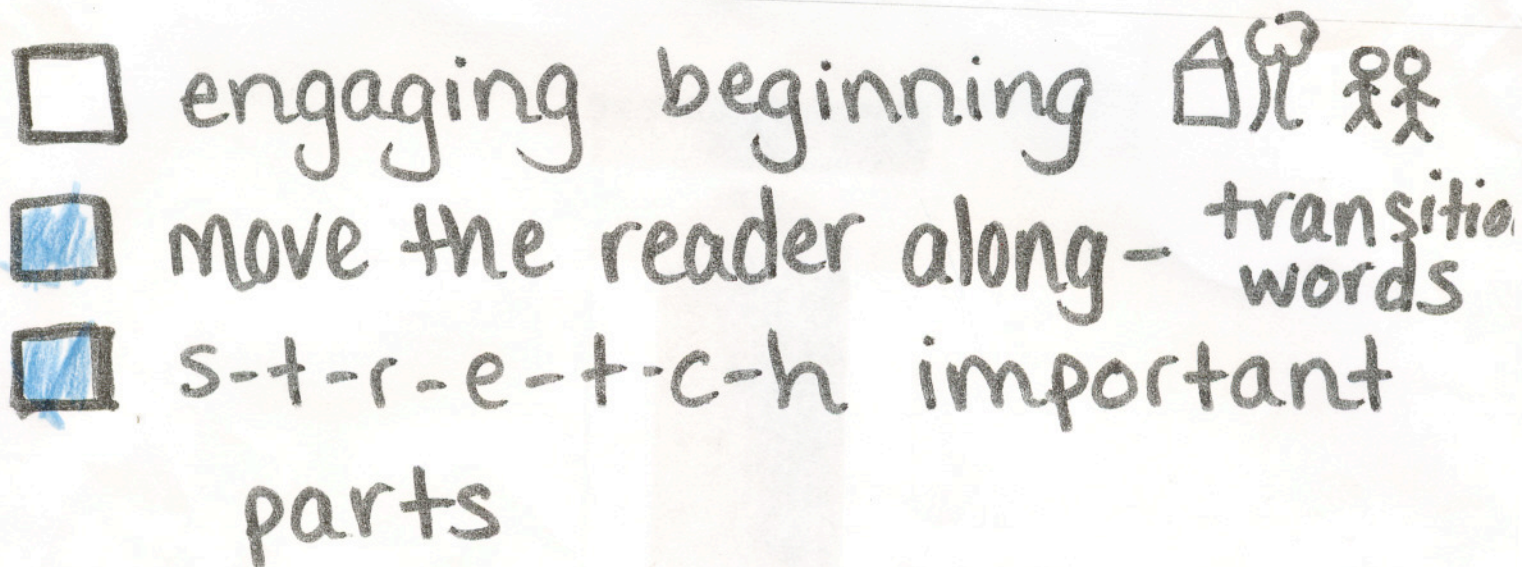 engaging beginning
move the reader along - transitio
words
s-t-r-e-t-c-h important
parts